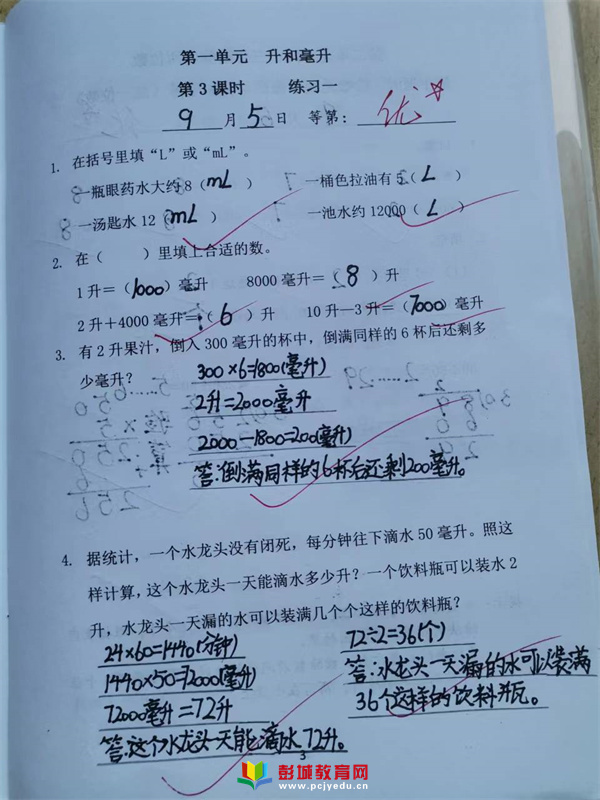 第一单元 升和毫升
第3课时 练习一
9月5日 等第：优☆
1. 在括号里填“L”或“mL”。
一瓶眼药水大约8（mL） 一桶色拉油有5（L）
一汤匙水12（mL） 一池水约12000（L）
2. 在（ ）里填上合适的数。
1升＝（1000）毫升 8000毫升＝（8）升
2升＋4000毫升＝（6）升 10升－3升＝（7000）毫升
3. 有2升果汁，倒入300毫升的杯中，倒满同样的6杯后还剩多
少毫升？ 300×6=1800(毫升)
2升=2000毫升
2000－1800=200(毫升)
答:倒满同样的6杯后还剩200毫升。
4. 据统计，一个水龙头没有闭死，每分钟往下滴水50毫升。照这
样计算，这个水龙头一天能滴水多少升？一个饮料瓶可以装水2
升，水龙头一天漏的水可以装满几个个这样的饮料瓶？
24×60=1440(分钟) 72÷2=36(个)
1440×50=72000(毫升) 答:水龙头一天漏的水可以装满
72000毫升=72升 36个这样的饮料瓶。
答:这个水龙头一天能滴水72升。
3
彭城教育网
www.pcjyedu.cn